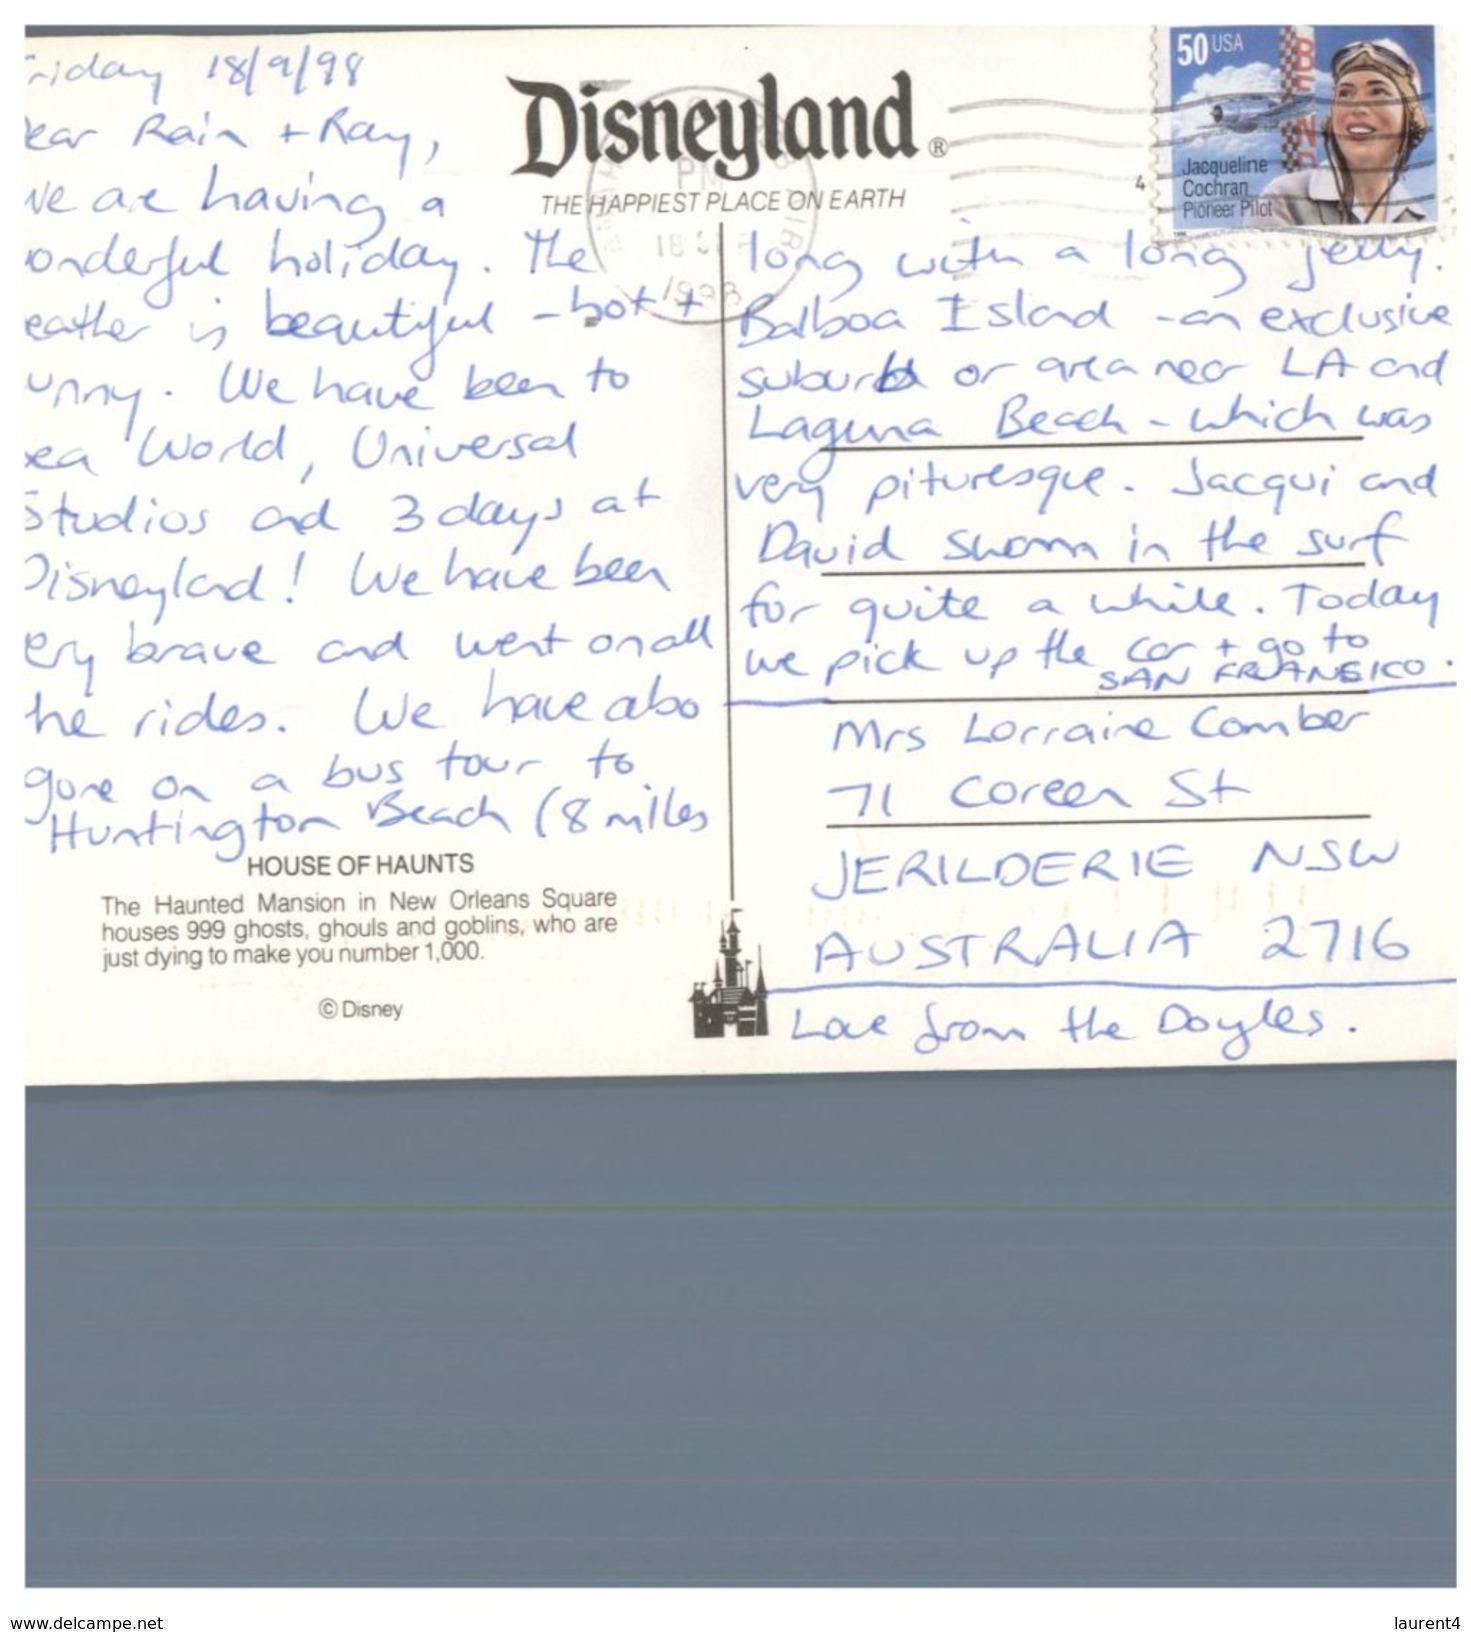 riday 18/9/98
ear Rain + Ray,
We are having a
onderful holiday. The
eather is beautiful - hot +
unny. We have been to
ea World, Universal
Studios and 3 days at
Disneyland! We have been
ery brave and went on all
he rides. We have also
gone on a bus tour to
Huntington Beach (8 miles
HOUSE OF HAUNTS
The Haunted Mansion in New Orleans Square
houses 999 ghosts, ghouls and goblins, who are
just dying to make you number 1,000.
© Disney
Disneyland®
THE HAPPIEST PLACE ON EARTH
PM
18
1998
4
50 USA
BEND
Jacqueline
Cochran
Pioneer Pilot
long with a long jetty.
Balboa Island - an exclusive
suburb or area near LA and
Laguna Beach - which was
very pituresque. Jacqui and
David swam in the surf
for quite a while. Today
we pick up the car + go to
SAN FRANSICO.
Mrs Lorraine Comber
71 Coreen St
JERILDERIE NSW
AUSTRALIA 2716
Love from the Doyles.
www.delcampe.net
laurent4